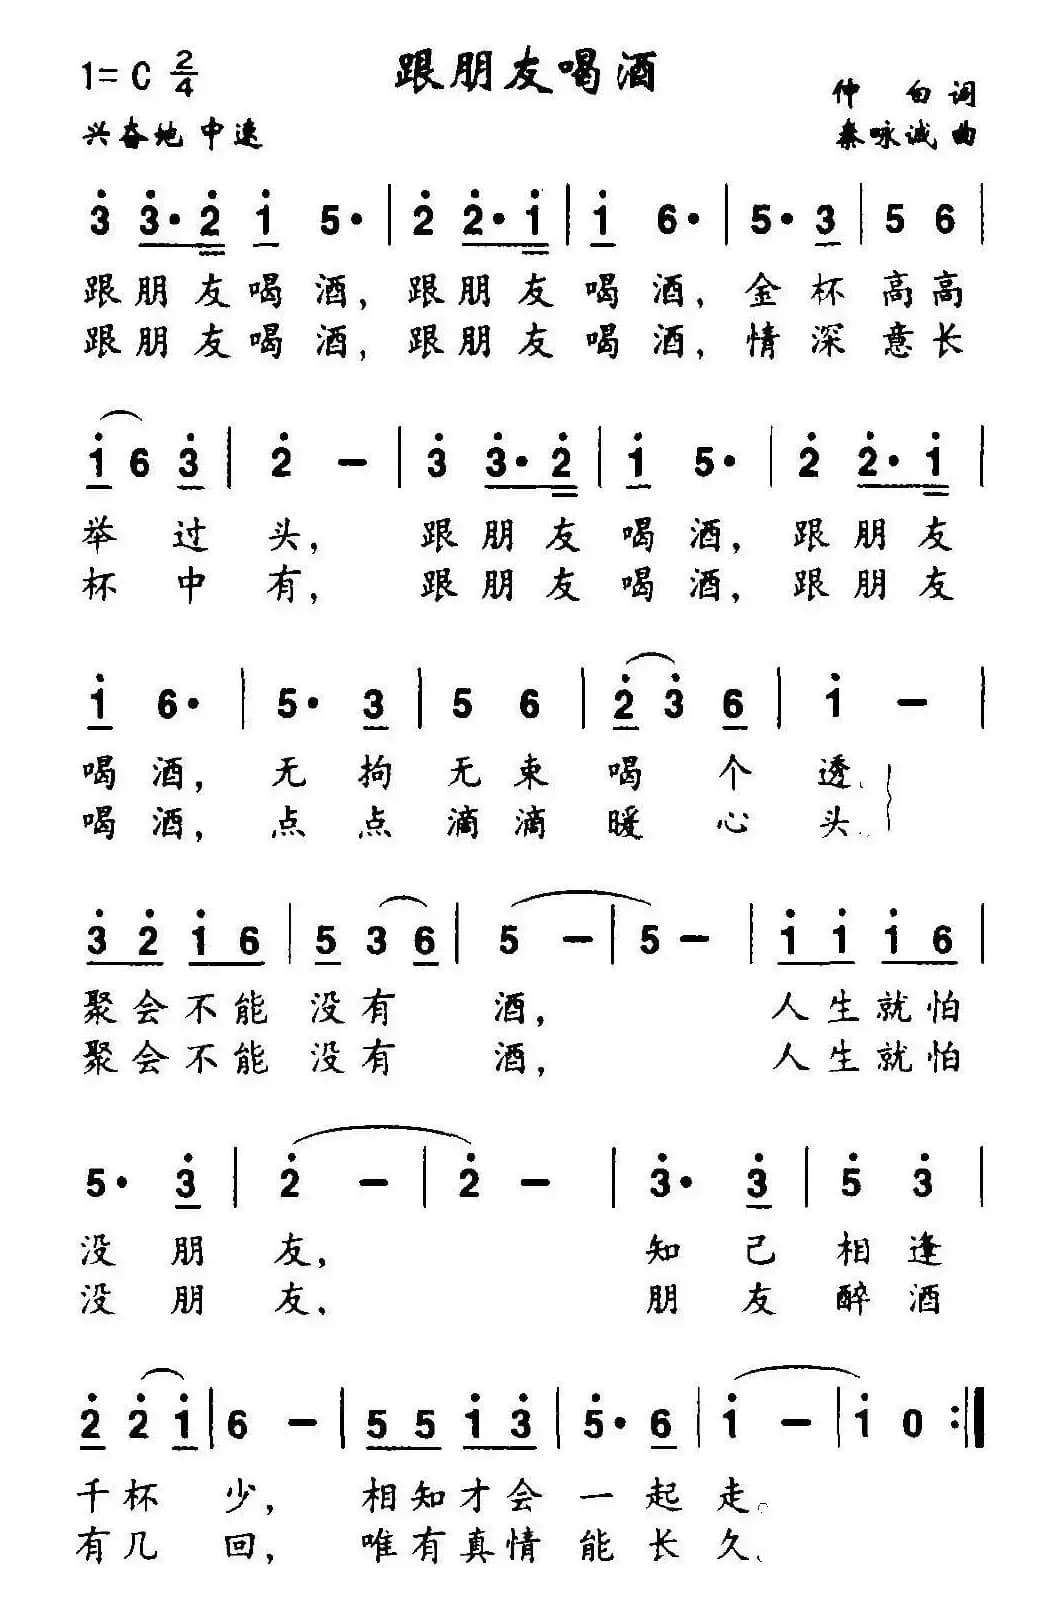 1=C 2/4
跟朋友喝酒
仲 白 词
兴奋地 中速
秦咏诚 曲
3 3·2 1 5· | 2 2·1 | 1 6· | 5·3 | 5 6 |
跟朋友喝酒，跟朋友喝酒，金杯高高
跟朋友喝酒，跟朋友喝酒，情深意长
1 6 3 | 2 – | 3 3·2 | 1 5· | 2 2·1 |
举过头，跟朋友喝酒，跟朋友
杯中有，跟朋友喝酒，跟朋友
1 6· | 5· 3 | 5 6 | 2 3 6 | 1 – |
喝酒，无拘无束喝个透、
喝酒，点点滴滴暖心头。
3 2 1 6 | 5 3 6 | 5 – | 5 – | 1 1 1 6 |
聚会不能没有酒，人生就怕
聚会不能没有酒，人生就怕
5· 3 | 2 – | 2 – | 3· 3 | 5 3 |
没朋友，知己相逢
没朋友、朋友醉酒
2 2 1 | 6 – | 5 5 1 3 | 5· 6 | 1 – | 1 0 :‖
千杯少，相知才会一起走。
有几回，唯有真情能长久、